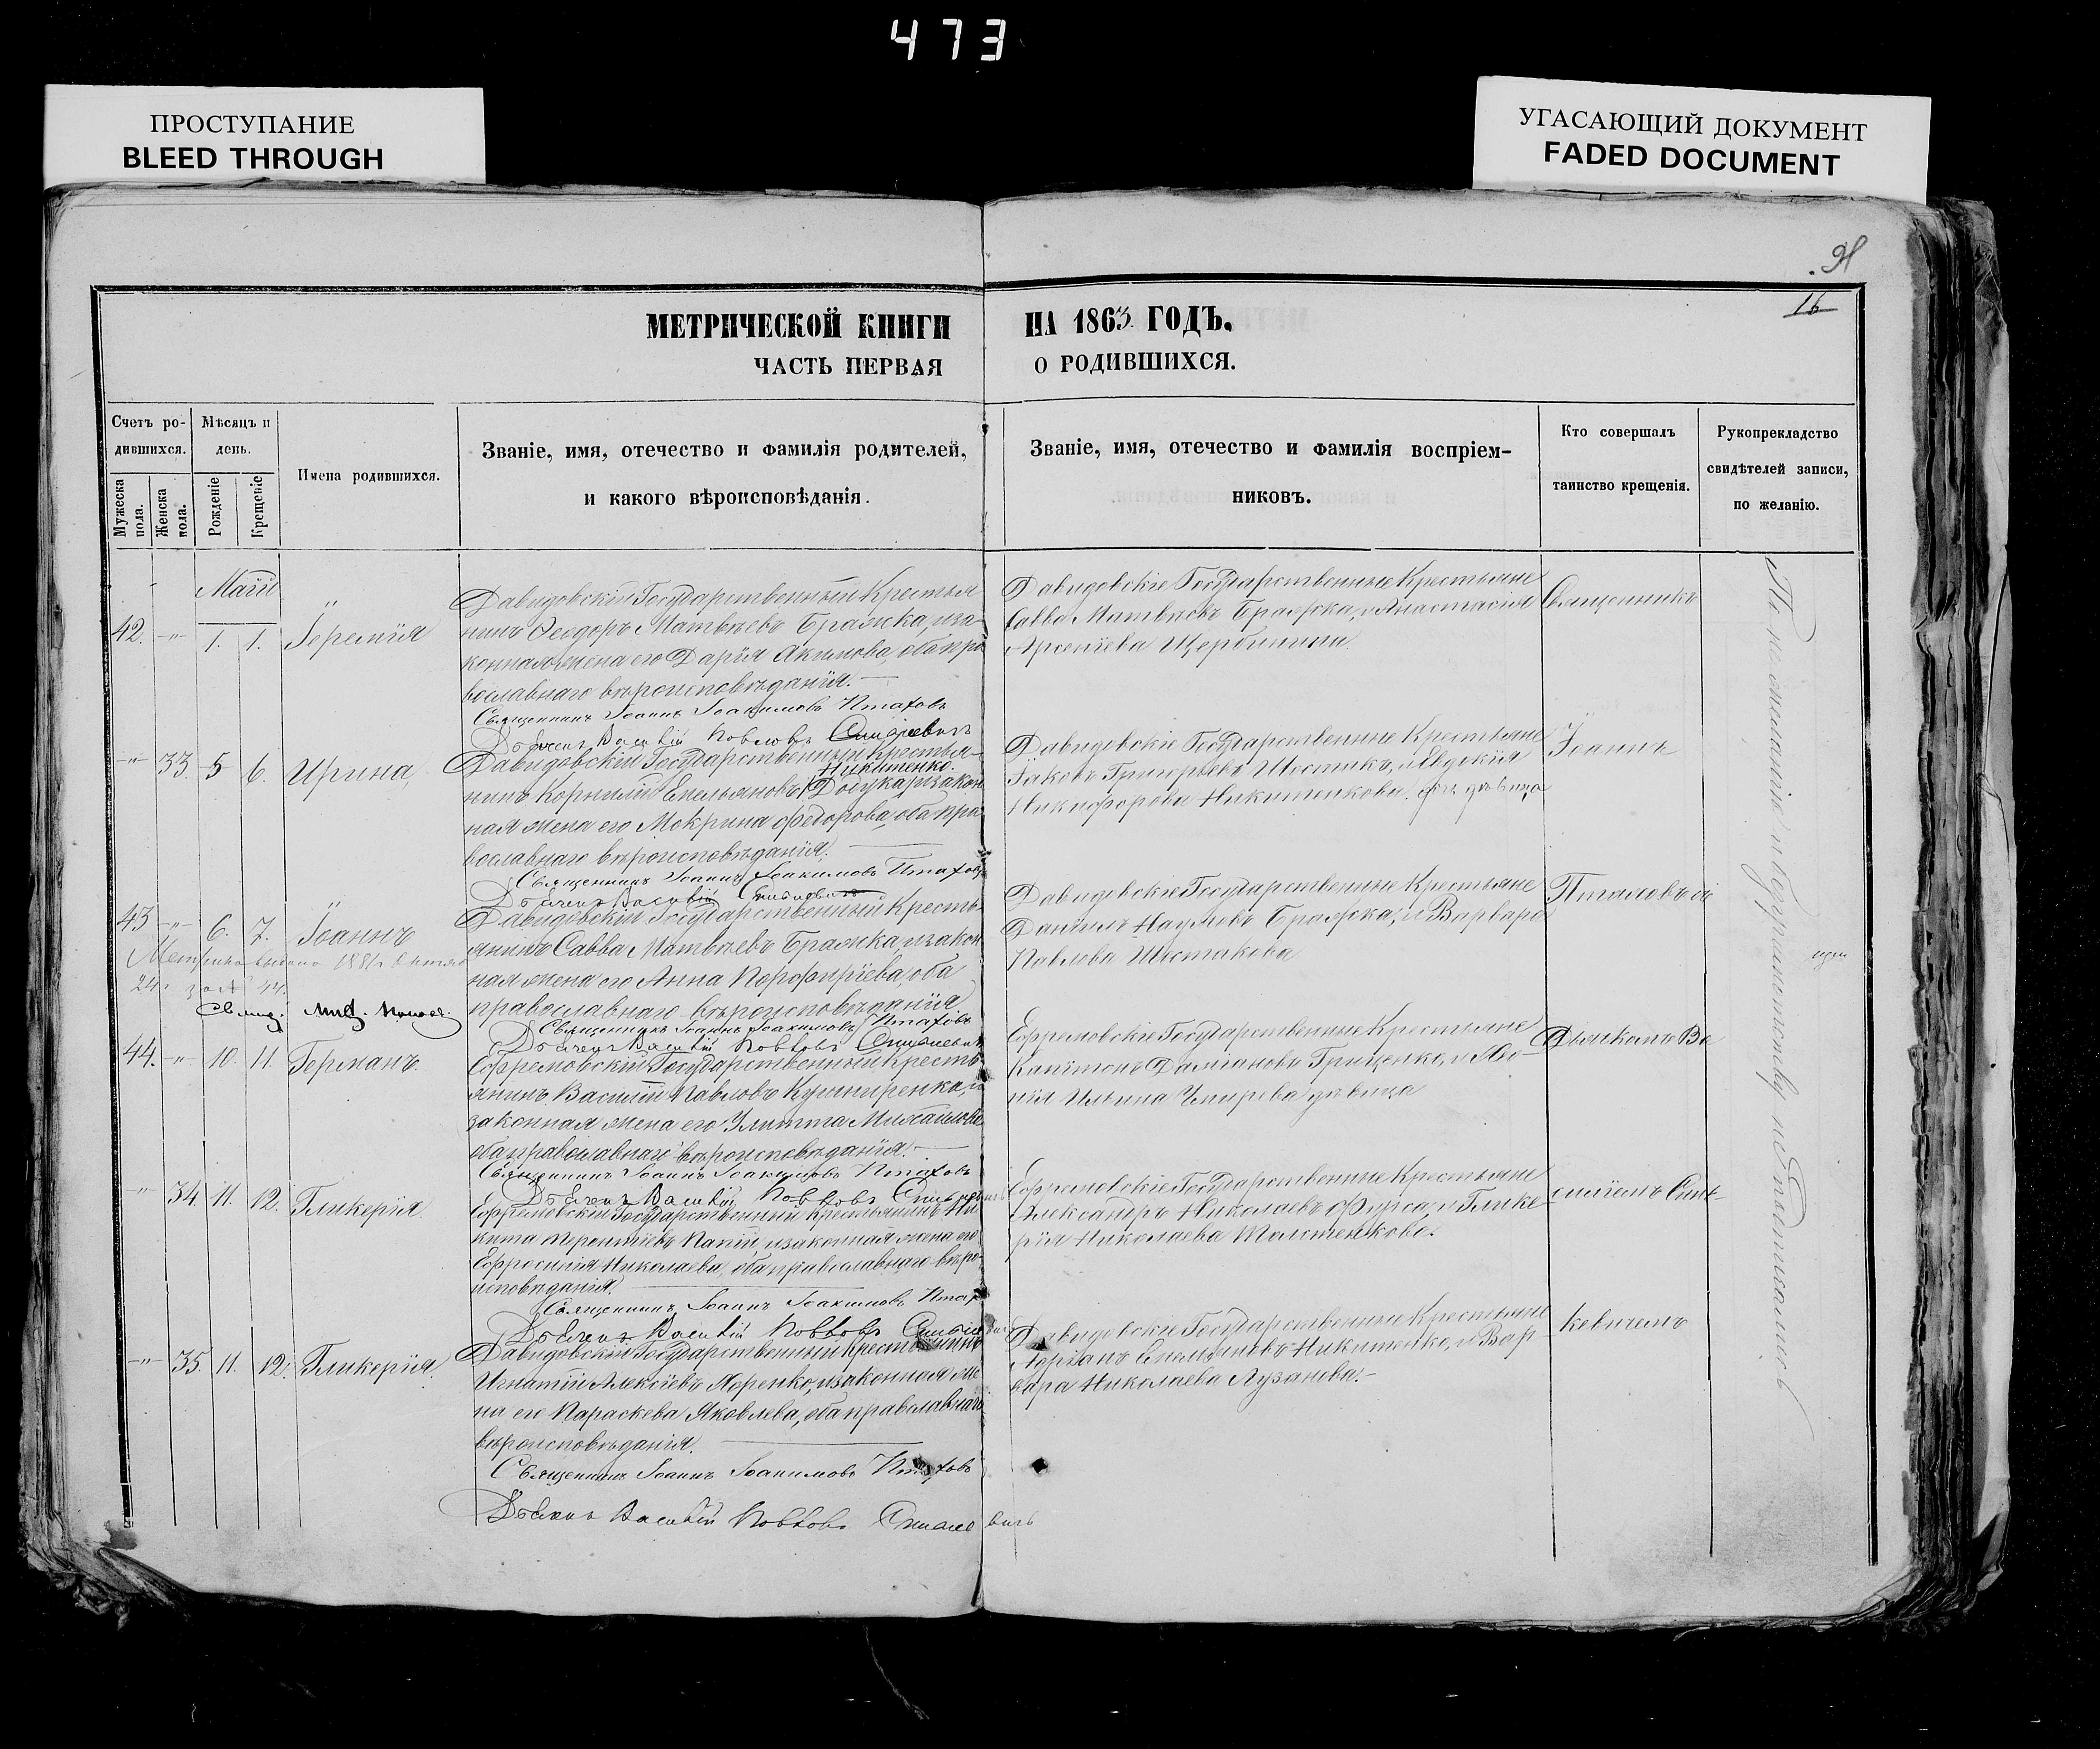 473
ПРОСТУПАНИЕ
BLEED THROUGH
УГАСАЮЩИЙ ДОКУМЕНТ
FADED DOCUMENT
91
16
МЕТРИЧЕСКОЙ КНИГИ НА 1863 ГОДЪ.
ЧАСТЬ ПЕРВАЯ О РОДИВШИХСЯ.
Счетъ ро-
дившихся.
Мужеска пола.
Женска пола.
Мѣсяцъ и
день.
Рожденіе
Крещеніе
Имена родившихся.
Званіе, имя, отечество и фамилія родителей,
и какого вѣроисповѣданія.
Званіе, имя, отечество и фамилія воспріем-
никовъ.
Кто совершалъ
таинство крещенія.
Рукоприкладство
свидѣтелей записи,
по желанію.
Маій
42. -"- 1. 1. Іеремія
Давидовскій Государственный Крестья
нинъ Ѳеодоръ Матвѣевъ Бражка, и за-
конная жена его Дарія Акимова, оба пра
вославнаго вѣроисповѣданія.
Священникъ Іоаннъ Іоакимовъ Птаховъ
Дьячекъ Василій Павловъ
Давидовскіе Государственные Крестьяне
Савва Матвѣевъ Бражка, и Анастасія
Арсеніева Щербинина.
Священникъ
-"- 33. 5 6. Ирина,
Давидовскій Государственный Крестья-
Никитенко.
нинъ Корнилій Емельяновъ и закон
ная жена его Мокрина Ѳедорова, оба пра
вославнаго вѣроисповѣданія.
Священникъ Іоаннъ Іоакимовъ Птаховъ
Дьячекъ Василій
Давидовскіе Государственные Крестьяне
Іаковъ Григорьевъ Шостикъ, и Евдокія
Никифорова Никитенкова. дѣвица
Іоаннъ
43 -"- 6. 7. Іоаннъ
Метрика выдана
24. за № 44.
Свящ.
Давидовскій Государственный Кресть-
янинъ Савва Матвѣевъ Бражка, и закон
ная жена его Анна Порфиріева, оба
православнаго вѣроисповѣданія
Священникъ Іоаннъ Іоакимовъ Птаховъ
Дьячекъ Василій Павловъ
Давидовскіе Государственные Крестьяне
Даніилъ Наумовъ Бражка, и Варвара
Павлова Шостакова
44. -"- 10. 11. Германъ.
Ефремовскій Государственный Кресть-
янинъ Василій Павловъ Кушниренко, и
законная жена его Улитта Михайлова
оба православнаго вѣроисповѣданія.
Священникъ Іоаннъ Іоакимовъ Птаховъ
Дьячекъ Василій Павловъ
Ефремовскіе Государственные Крестьяне
Капитонъ Даміановъ Грищенко, и
Ильина дѣвица
Дьячкомъ Ва
-"- 34. 11. 12. Гликерія.
Ефремовскій Государственный Крестьянинъ Ни
кита Терентіевъ Папій, и законная жена его
Ефросинія Николаева, оба православнаго вѣро-
исповѣданія.
Священникъ Іоаннъ Іоакимовъ Птах
Дьячекъ Василій Павловъ
Ефремовскіе Государственные Крестьяне
Александръ Николаевъ Фурса, и Глике
рія Николаева Толстенкова.
силіемъ Сит-
-"- 35. 11. 12. Гликерія.
Давидовскій Государственный Крестьянинъ
Игнатій Алексѣевъ Норенко, и законная же
на его Параскева Яковлева, оба православнаго
вѣроисповѣданія.
Священникъ Іоаннъ Іоакимовъ Птаховъ
Дьячекъ Василій Павловъ
Давидовскіе Государственные Крестьяне
Адріанъ Емельяновъ Никитенко, и Вар
вара Николаева Лузанова.-
кевичемъ